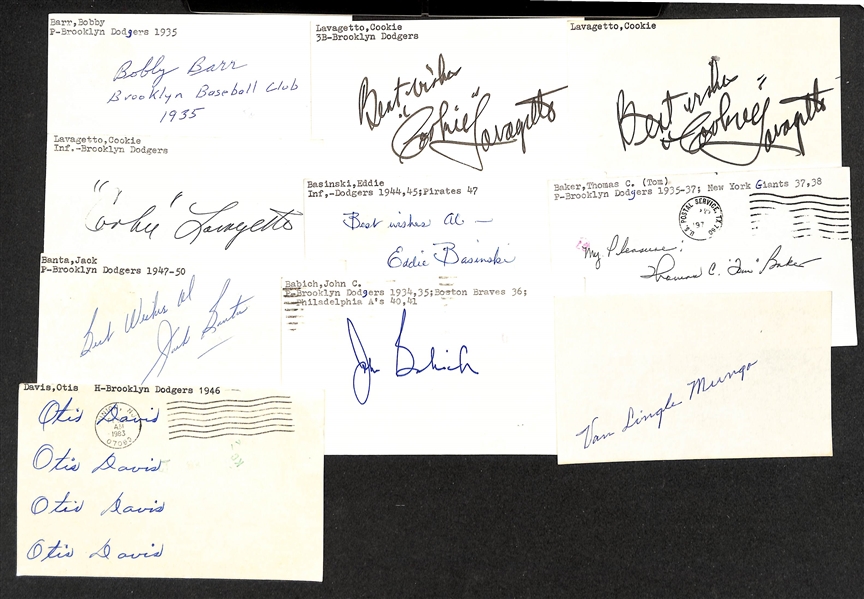 Barr,Bobby
P-Brooklyn Dodgers 1935
Bobby Barr
Brooklyn Baseball Club
1935
Lavagetto,Cookie
3B-Brooklyn Dodgers
Best wishes
"Cookie" Lavagetto
Lavagetto,Cookie
Best wishes
"Cookie" Lavagetto
Lavagetto,Cookie
Inf.-Brooklyn Dodgers
"Cookie" Lavagetto
Basinski,Eddie
Inf,-Dodgers 1944,45;Pirates 47
Best wishes Al —
Eddie Basinski
Baker,Thomas C. (Tom)
P-Brooklyn Dodgers 1935-37; New York Giants 37,38
U.S. POSTAL SERVICE, TX 760
My Pleasure!
Thomas C. "Tom" Baker
Banta,Jack
P-Brooklyn Dodgers 1947-50
Best Wishes Al
Jack Banta
Babich,John C.
P-Brooklyn Dodgers 1934,35;Boston Braves 36;
Philadelphia A's 40,41
John Babich
Van Lingle Mungo
Davis,Otis H-Brooklyn Dodgers 1946
AM
1983
07083
Otis Davis
Otis Davis
Otis Davis
Otis Davis